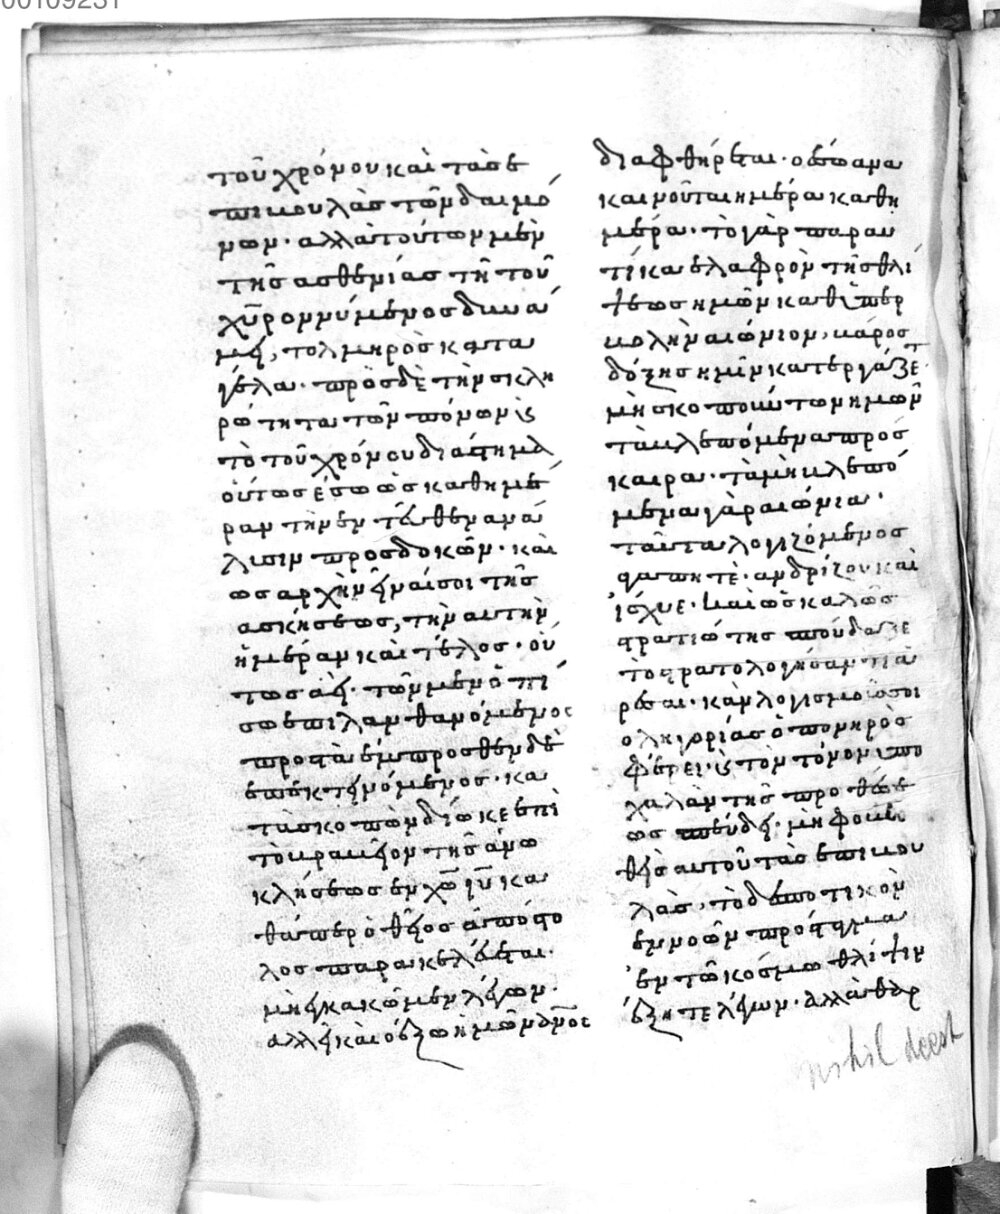 00109231
τοῦ χρόνου καὶ τὰσ ἐ
πιβουλὰσ τῶν δαιμό
νων· ἀλλὰ τούτων μὲν
τῆσ ἀσθενίασ τῆ τοῦ
χ̅υ̅ ρομνύμενοσ δυνά
μει, τολμηρὸσ κατα
γέλα· πρὸσ δὲ τὴν σκλη
ρότητα τῶν πόνων ἰσ
τὸ τοῦ χρόνου διάστημα
οὕτωσ ἔσω ὡσ καθημέ
ραν τὴν ἐντεῦθεν ἀνά
λυσιν προσδοκῶν· καὶ
ὡσ ἀρχὴν εἶναί σοι τῆσ
ἀσκήσεωσ, τὴν αὐτὴν
ἡμέραν καὶ τέλοσ· οὕ
τωσ ἀεὶ· τῶν μὲν ὀπί
σω ἐπιλανθανόμενοσ
πρὸσ τὰ ἔμπροσθεν δὲ
ἐπεκτεινόμενοσ· κα
τὰ σκοπὸν δίωκε ἐπὶ
τὸ βραβεῖον τῆσ ἄνω
κλήσεωσ ἐν χ̅ω̅ ι̅υ̅ κα
θάπερ ὁ θεῖοσ ἀπόστο
λοσ παρακελεύεται·
μὴ ἐκκακῶμεν λέγων·
ἀλλ' εἰ καὶ ὁ ἔξω ἡμῶν α̅ν̅ο̅σ̅
διαφθήρεται· ὁ ἔσω ἀνα
καινοῦται ἡμέρα καθη
μέρα· τὸ γὰρ παραυ
τίκα ἐλαφρὸν τῆσ θλί
ψεωσ ἡμῶν καθ ὑπερ
βολὴν αἰώνιον, βάροσ
δόξησ ἡμῖν κατεργάζετ
μὴ σκοπούντων ἡμῶν
τὰ βλεπόμενα πρόσ
καιρα· τὰ μὴ βλεπό
μενα γὰρ αἰώνια·
ταῦτα λογιζόμενοσ
ἀγαπητὲ· ἀνδρίζου καὶ
ἴσχυε· καὶ ὡσ καλῶσ
στρατιώτησ σπούδαζε
τῶ στρατολογήσαντι ἀ
ρέσαι· κἂν λογισμοὺσ σοι
ὀλιγορίασ ὁ πονηρὸσ
φέρει· ἰσ τὸν τόνον ὑπο
χαλᾶν τῆσ προθέσε
ωσ σπεύδει· μὴ φοβη
θεὶσ αὐτοῦ τὰσ ἐπιβου
λὰσ, τὸ δεσποτικὸν
ἐννοῶν πρόσταγμα
ἐν τῶ κόσμω θλίψιν
ἕξητε λέγων· ἀλλὰ θαρ
nihil deest